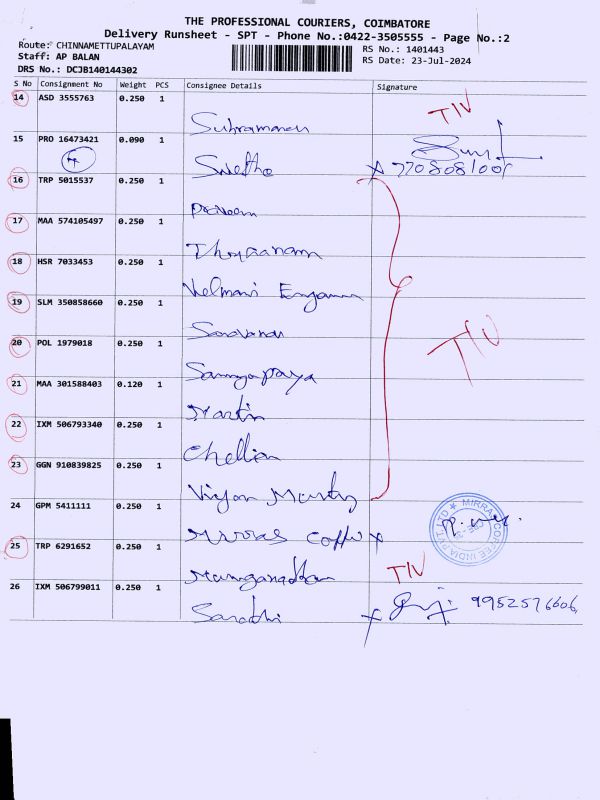 THE PROFESSIONAL COURIERS, COIMBATORE
Delivery Runsheet - SPT - Phone No.:0422-3505555 - Page No.:2
Route: CHINNAMETTUPALAYAM
RS No.: 1401443
Staff: AP BALAN
RS Date: 23-Jul-2024
DRS No.: DCJB140144302
S No Consignment No Weight PCS Consignee Details Signature
14 ASD 3555763 0.250 1
TIV
Subramanan
15 PRO 16473421 0.090 1
Swetha
16 TRP 5015537 0.250 1
Praveen
17 MAA 574105497 0.250 1
18 HSR 7033453 0.250 1
Velmani
19 SLM 350858660 0.250 1
Saravanan
20 POL 1979018 0.250 1
TIV
21 MAA 301588403 0.120 1
Martin
22 IXM 506793340 0.250 1
Chellian
23 GGN 910839825 0.250 1
24 GPM 5411111 0.250 1
MIRRAS COFFEE INDIA PVT LTD
Mirras Coffee
25 TRP 6291652 0.250 1
TIV
26 IXM 506799011 0.250 1
9952576606
Sarathi